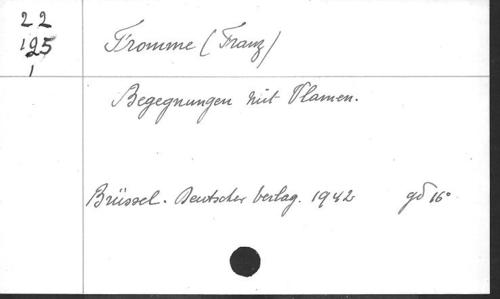 22
125
1
Fromme (Franz)
Begegnungen mit Vlamen.
Brüssel. Deutscher Verlag. 1942 gd 16°